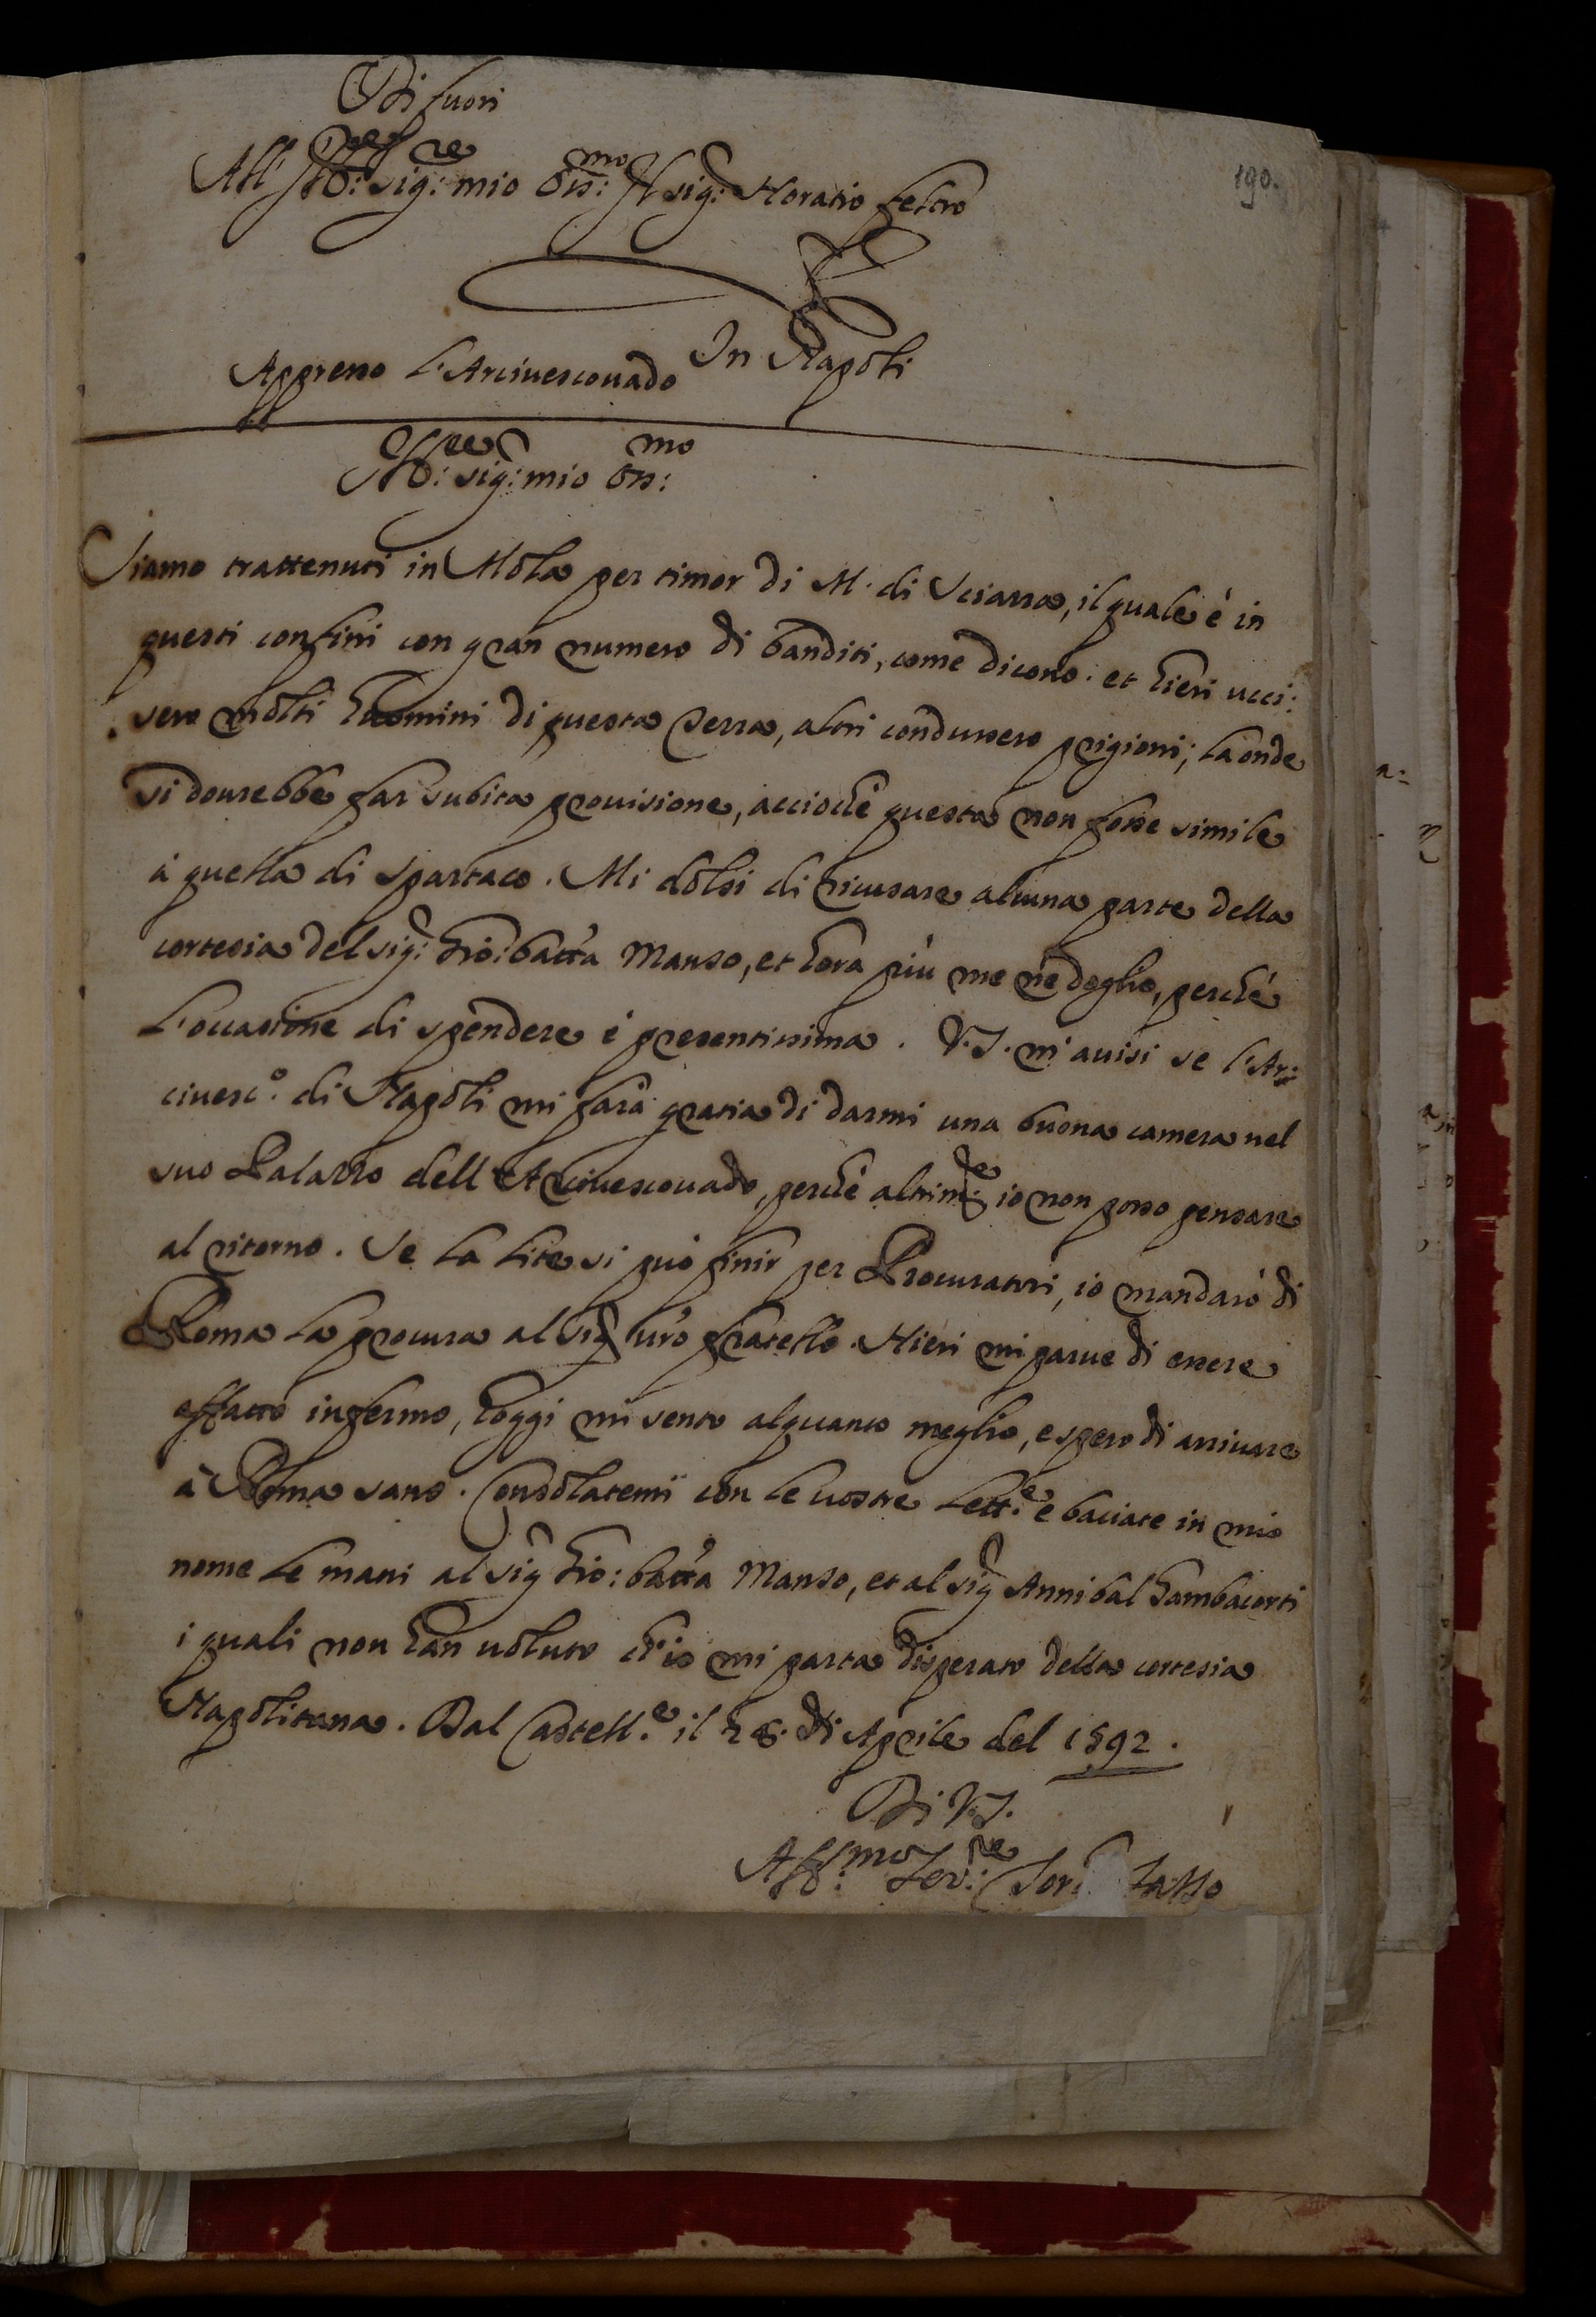 Di fuori
190.
All' Ill:re sig:re mio oss:mo Il sig: Horatio feltro
In Napoli
Appresso l'Arcivescovado
Ill:re sig: mio oss:mo
Siamo trattenuti in Mola per timor di M. di Sciarra, il quale è in
questi confini con gran numero di banditi, come dicono: et hieri ucci:
sero molti huomini di questa Terra, altri condussero prigioni; la onde
si dourebbe far subita prouisione, accioche questa non fosse simile
à quella di Spartaco. Mi dolsi di ricusare alcuna parte della
cortesia del sig: Gio: batta Manso, et hora più me ne doglio, perche
l'occasione di spendere è presentissima. V.S. m'auisi se l'Ar:
ciuesc.o di Napoli mi farà gratia di darmi una buona camera nel
suo Palazzo dell'Arciuescouado, perche altrim:te io non posso pensare
al ritorno. Se la lite si può finir per Procuratori, io mandarò di
Roma la procura al sig uro fratello. Hieri mi parue di essere
affatto infermo, hoggi mi sento alquanto meglio, e spero di arriuare
à Roma sano. Consolatemi con le uostre lett.e e baciate in mio
nome le mani al sig Gio: batta Manso, et al sig Annibal Gambacorti
i quali non han uoluto ch'io mi parta disperato della cortesia
Napolitana. Dal Castell.e il 28. di Aprile del 1592.
Di V.S.
Aff:mo Ser:re Tor Tasso